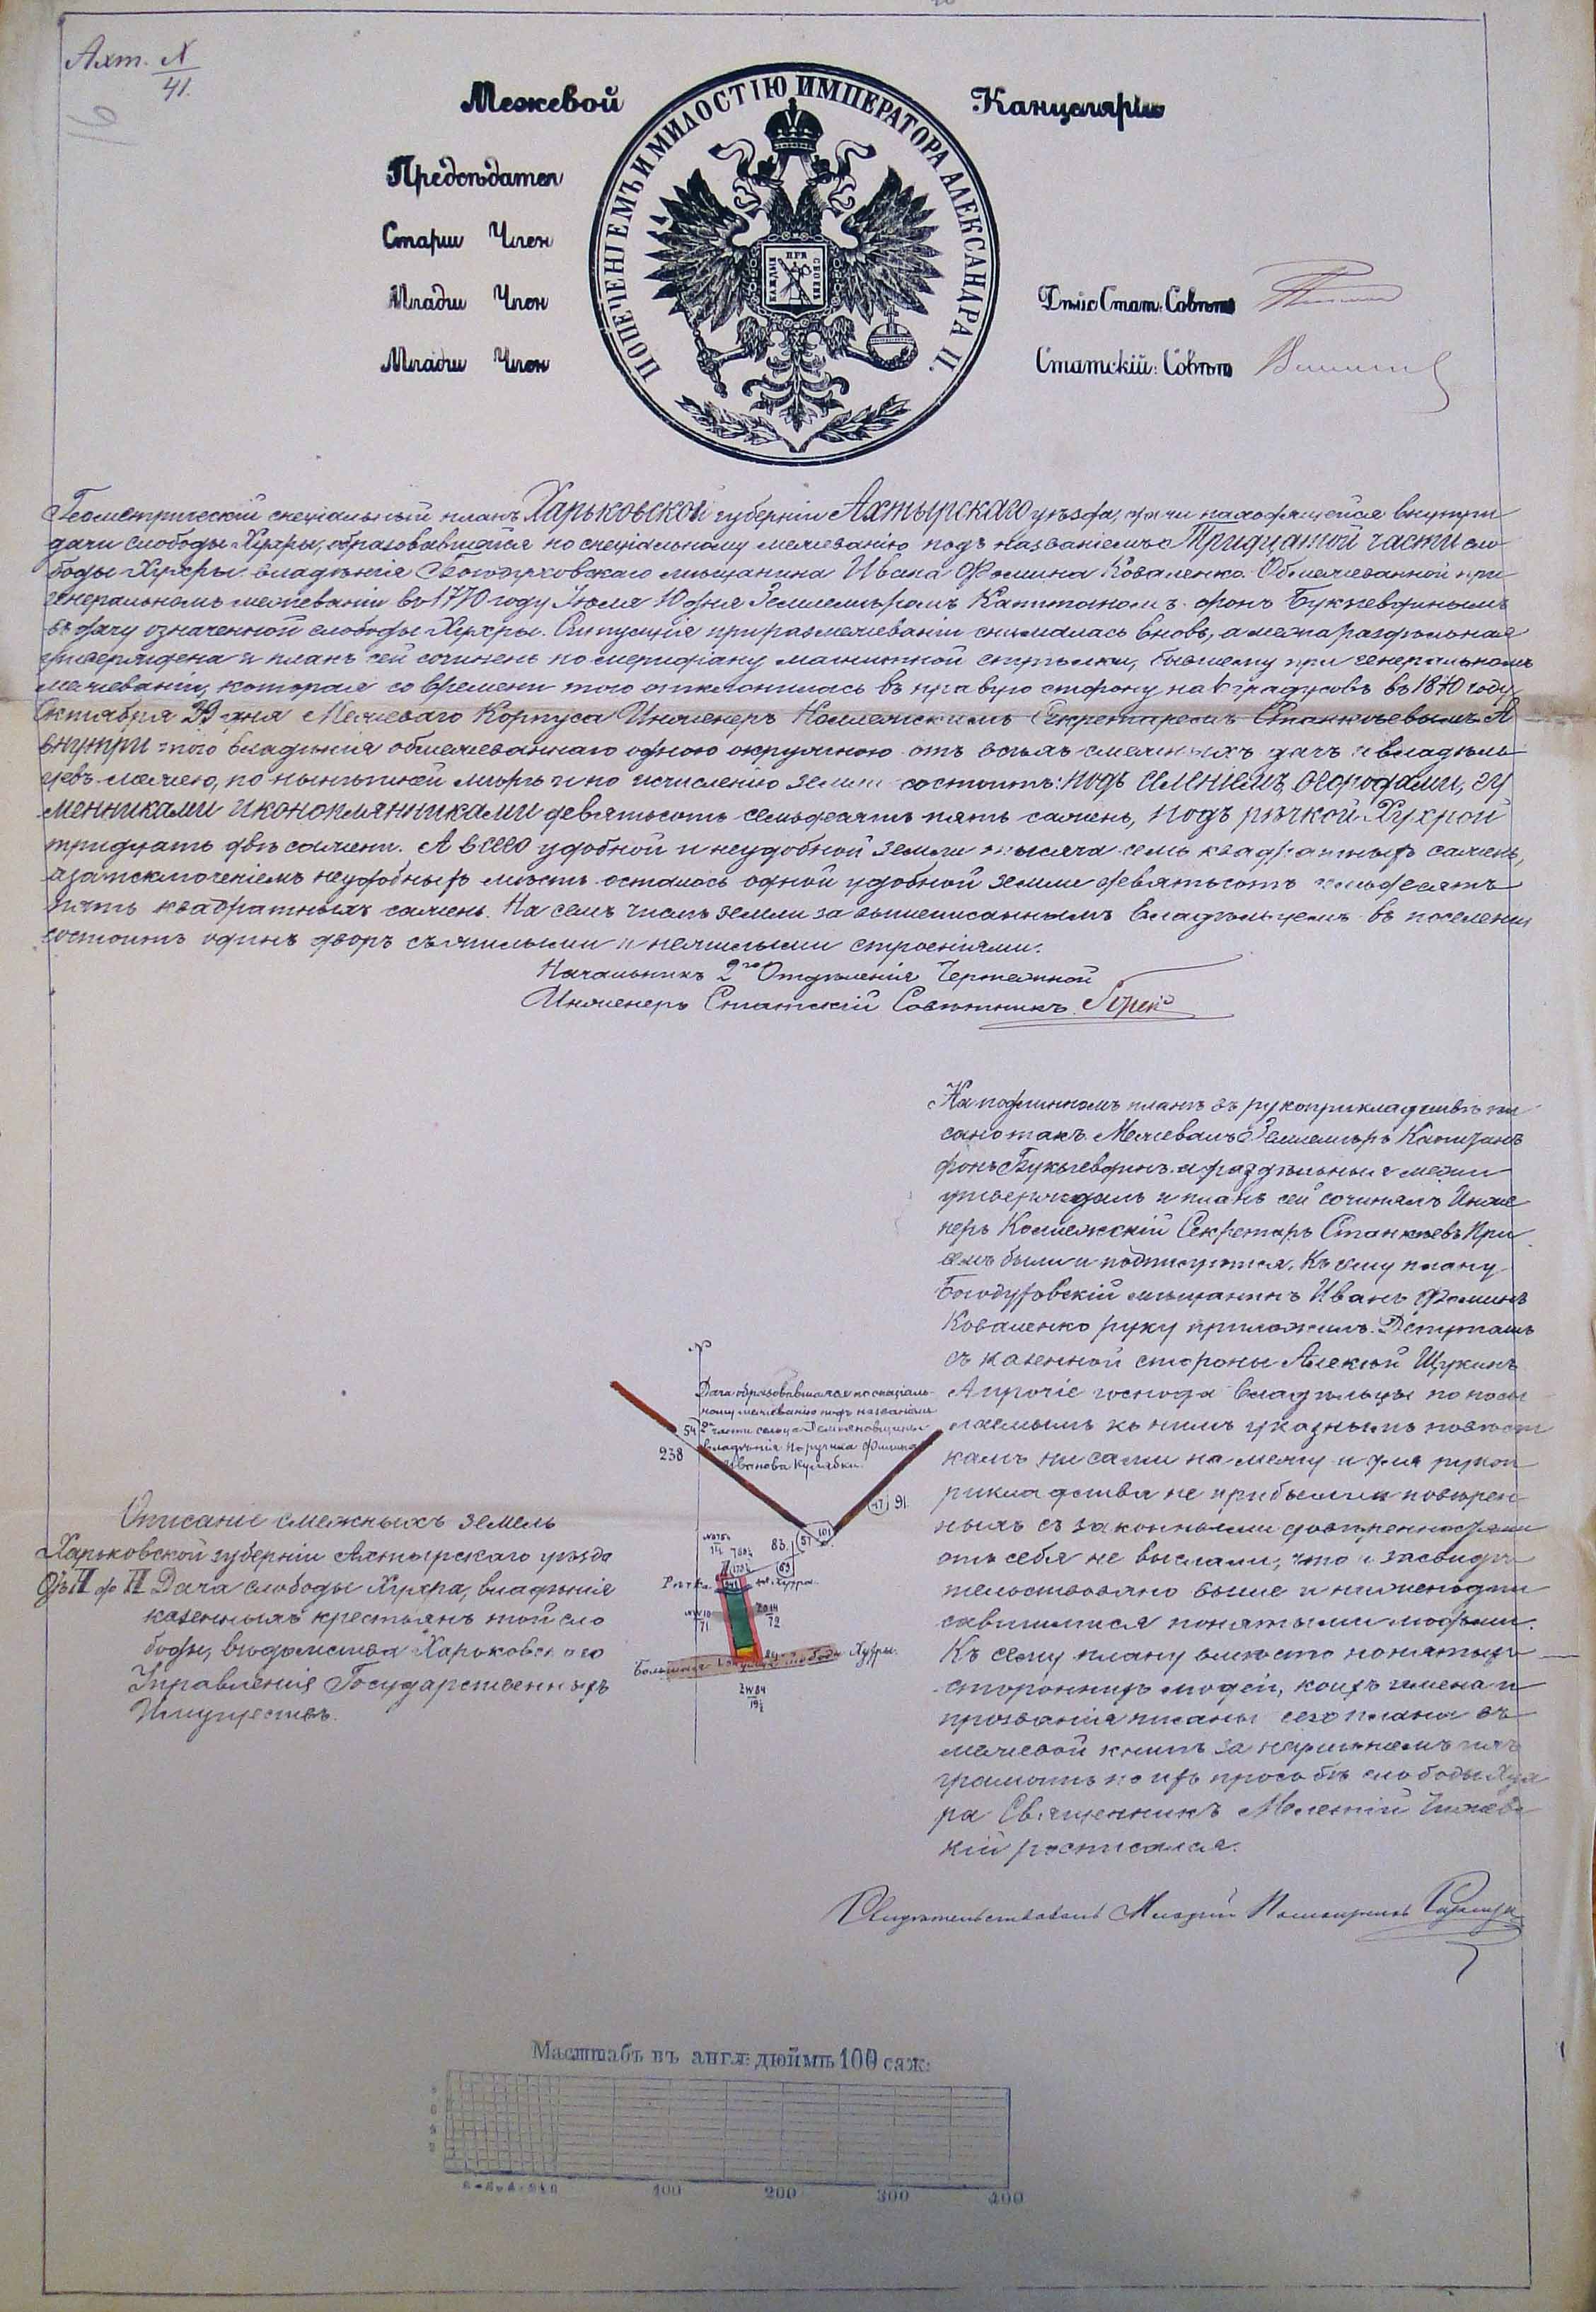 Ахт. N
41.
Межевой Канцеляріи
ПОПЕЧЕНІЕМЪ И МИЛОСТІЮ ИМПЕРАТОРА АЛЕКСАНДРА II.
КАЖДЫЙ ПРИ СВОЕМЪ
Предсѣдател
Старш Член
Младш Член Дѣйс Стат: Совѣтн
Младш Член Статскій: Совѣтн
Геометрическій спеціальный планъ Харьковской губерніи Ахтырскаго уѣзда, дачи находящейся внутри
дачи слободы Хухры, образовавшейся по спеціальному межеванію подъ названіемъ Тридцатой части сло
боды Хухры владѣнія Богодуховскаго мѣщанина Ивана Фомина Коваленко. Обмежеванной при
генеральномъ межеваніи въ 1770 году Іюля 10 дня Землемѣромъ Капитаномъ фонъ Букгевдиномъ
въ дачу означенной слободы Хухры. Ситуація при размежеваніи снималась вновь, а межа раздѣльная
утверждена и планъ сей сочиненъ по меридіану магнитной стрѣлки, бывшему при генеральномъ
межеваніи, которая со времени того отклонилась въ правую сторону на градусовъ въ 1870 году
Октября 29 дня Межеваго Корпуса Инженеръ Коллежскимъ Секретаремъ Станкѣевымъ. А
внутри того владѣнія обмежеваннаго одною окружною отъ всѣхъ смежныхъ дачъ и владѣль
цевъ межею, по нынѣшней мѣрѣ и по исчисленію земли состоитъ: подъ селеніемъ, огородами, гу
менниками и конопляниками девятьсотъ семьдесятъ пять саженъ, подъ рѣчкой Хухрой
тридцать двѣ сажени. А всего удобной и неудобной земли тысяча семь квадратныхъ саженъ,
а за исключеніемъ неудобныхъ мѣстъ осталось одной удобной земли девятьсотъ семьдесятъ
пять квадратныхъ саженъ. На семъ числѣ земли за вышеписаннымъ владѣльцемъ въ поселеніи
состоитъ одинъ дворъ съ жилыми и нежилыми строеніями.
Начальникъ 2го Отдѣленія Чертежной
Инженеръ Статскій Совѣтникъ
На подлинномъ планѣ въ рукоприкладствѣ пи
сано такъ. Межевалъ Землемѣръ Капитанъ
фонъ Букгевдинъ. а раздѣльныя межи
утверждалъ и планъ сей сочинялъ Инже
неръ Коллежскій Секретарь Станкѣевъ При
семъ были и подписуются. Къ сему плану
Богодуховскій мѣщанинъ Иванъ Фоминъ
Коваленко руку приложилъ. Депутатъ
съ казенной стороны Алексѣй Щукинъ
А прочіе господа владѣльцы по посы
лаемымъ къ нимъ указнымъ повѣст
камъ ни сами на межу и для рукоп
рикладства не прибыли и повѣрен
ныхъ съ законными довѣренностями
отъ себя не выслали, что и засвидѣ
тельствовано выше и нижеподпи
савшимися понятыми людьми.
Къ сему плану вмѣсто понятыхъ
стороннихъ людей, коихъ имена и
прозванія писаны сего плана въ
межевой книгѣ за неумѣніемъ ихъ
грамотѣ по ихъ просьбѣ слободы Хух
ра Священникъ Мелетій
кій росписался.
Свидѣтельствовалъ Младшій Помощникъ
N
Дача образовавшаяся по спеціаль-
ному межеванію подъ названіемъ
2й части сельца Демьяновщины
владѣнія поручика Филипа
Иванова Кулябки.
54
238
47 91
101
57
83.
69
Рѣчка Хухра
71
72
Большая улица слободы Хухры.
ZW 84
19½
Описаніе смежныхъ земель
Харьковской губерніи Ахтырскаго уѣзда
Отъ П до П Дача слободы Хухра, владѣніе
казенныхъ крестьянъ той сло
боды, вѣдомства Харьковскаго
Управленія Государственныхъ
Имуществъ.
Масштабъ въ англ: дюймѣ 100 саж:
100 200 300 400